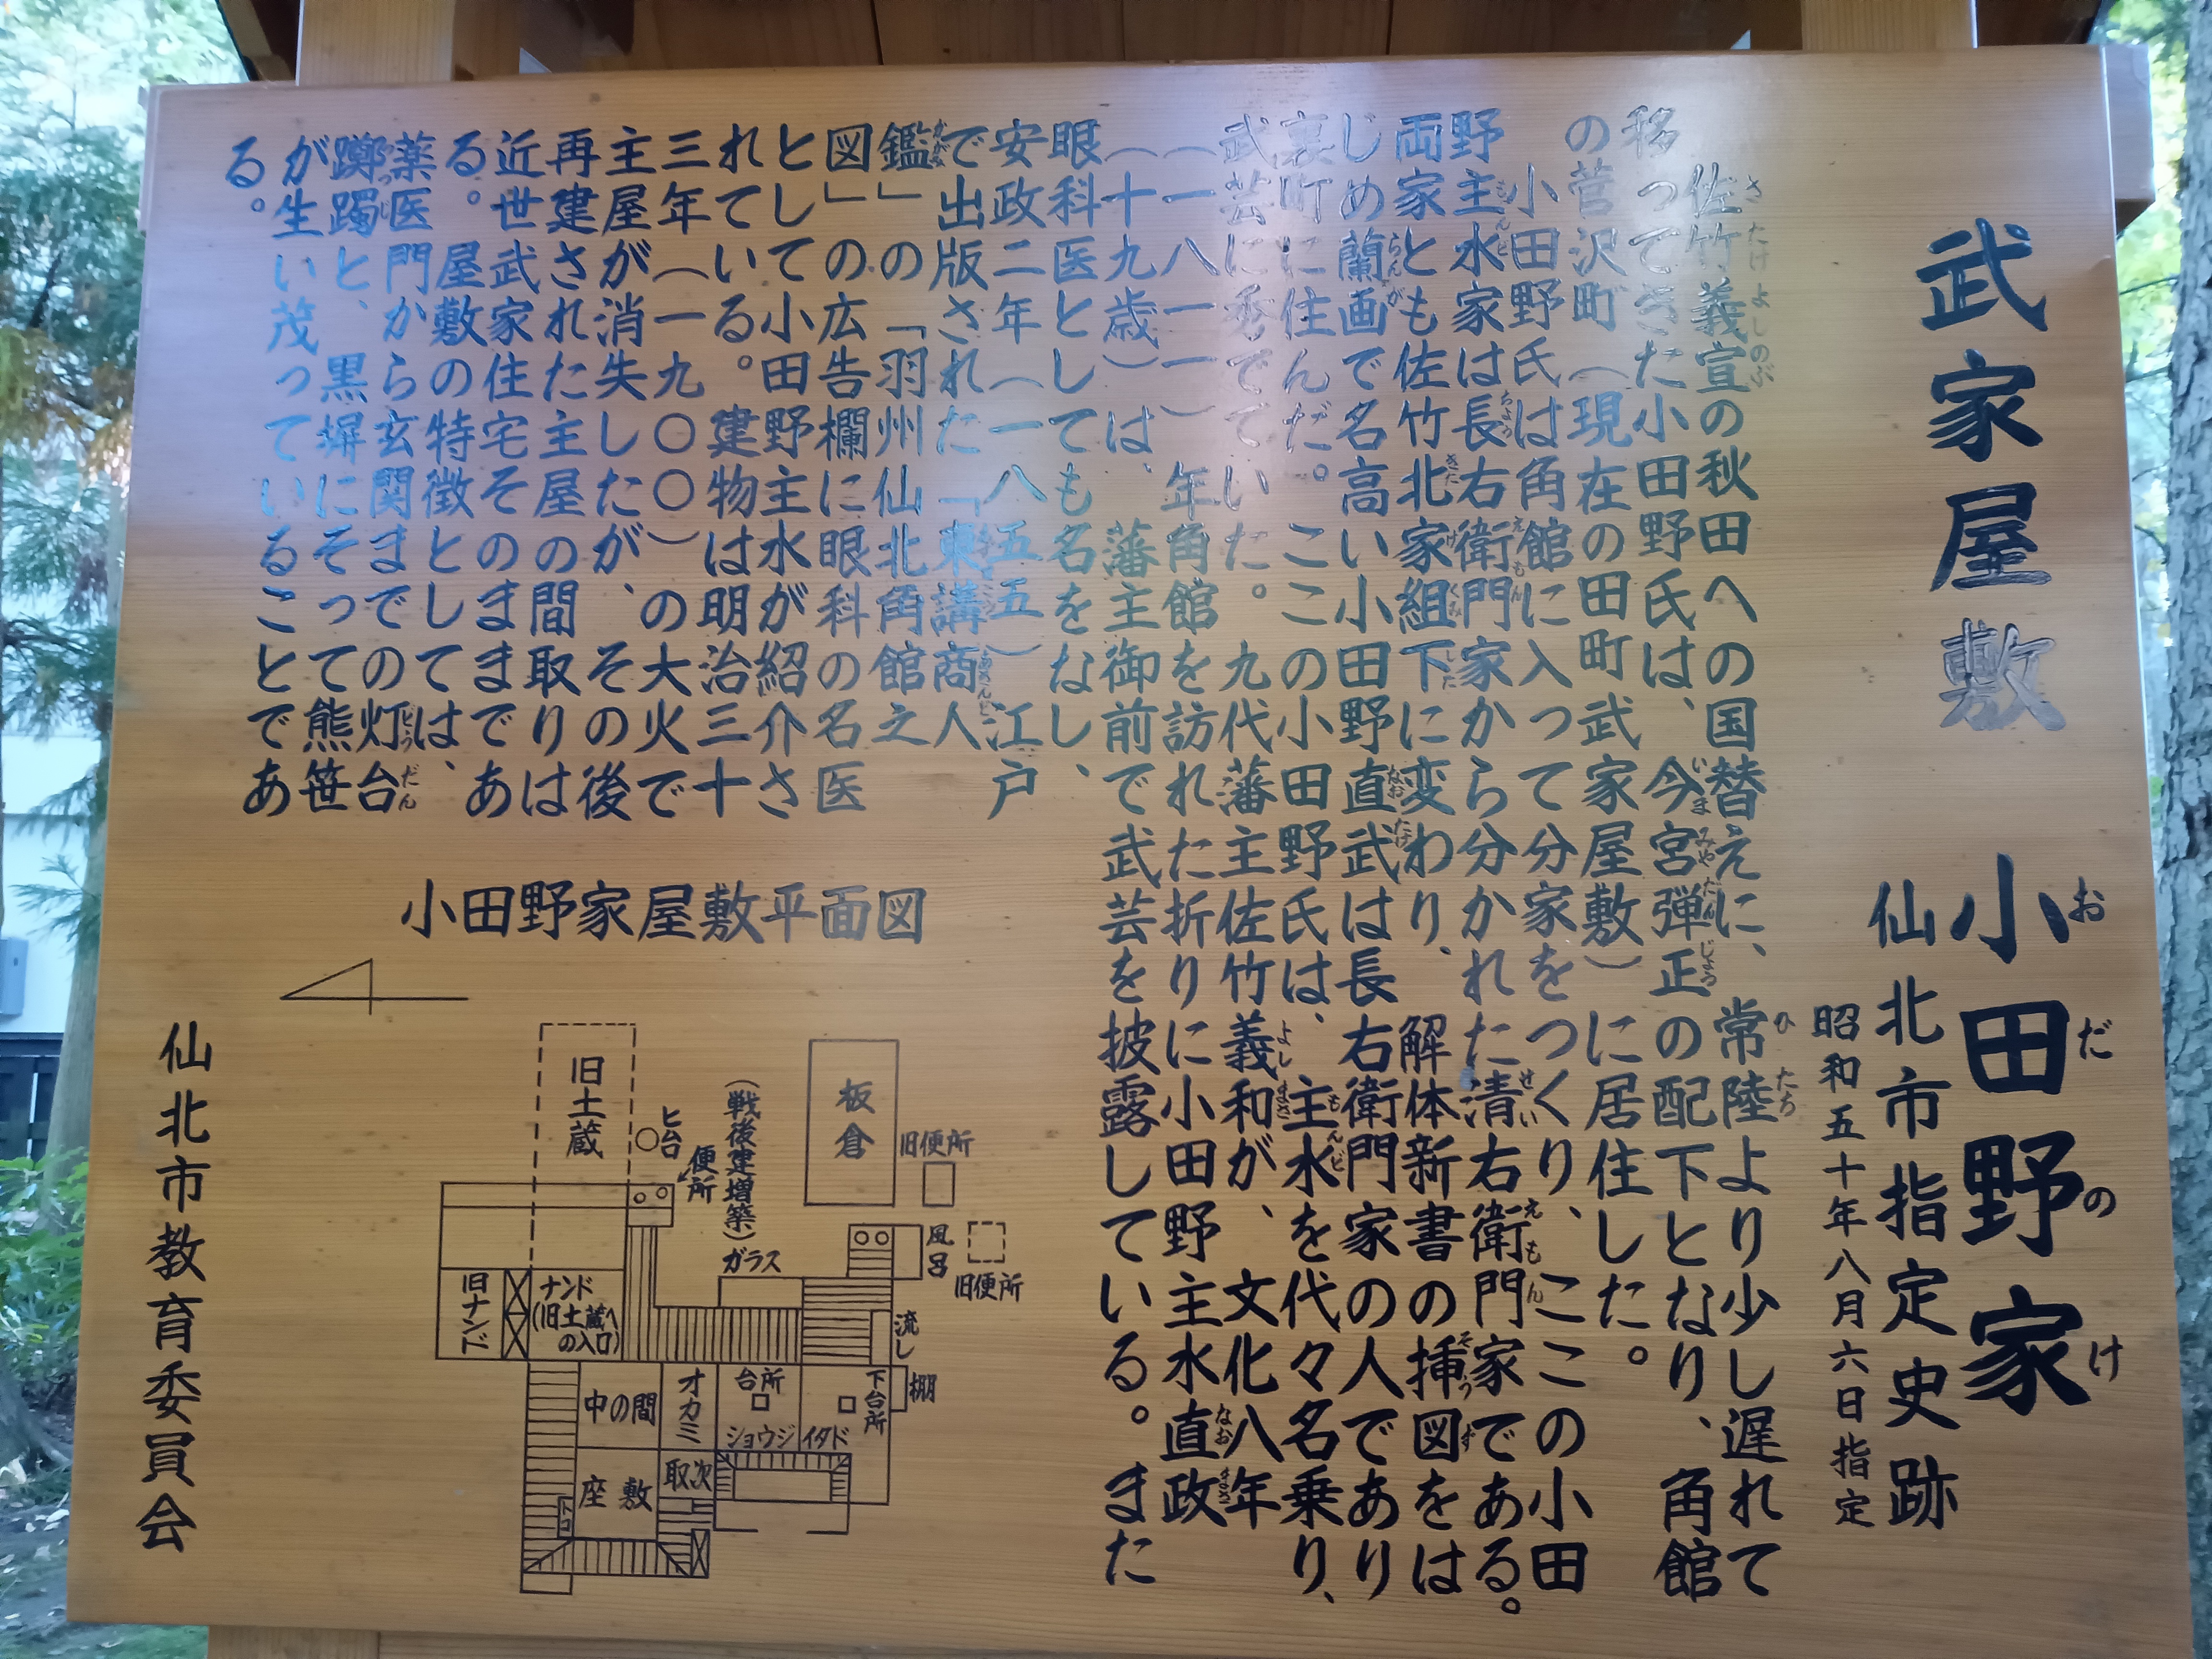 武家屋敷 小田野家
仙北市指定史跡
昭和五十年八月六日指定
佐竹義宣の秋田への国替えに、常陸より少し遅れて
移ってきた小田野氏は、今宮弾正の配下となり、角館
の菅沢町(現在の田町武家屋敷)に居住した。
小田野氏は角館に入って分家をつくり、ここの小田
野主水家は長右衛門家から分かれた清右衛門家である。
両家とも佐竹北家組下に変わり、解体新書の挿図をは
じめ蘭画で名高い小田野直武は長右衛門家の人であり
裏町に住んだ。ここの小田野氏は、主水を代々名乗り、
武芸に秀でていた。九代藩主佐竹義和が、文化八年
(一八一一)年角館を訪れた折りに小田野主水直政
(十九歳)は、藩主御前で武芸を披露している。また
眼科医としても名をなし、
安政二年(一八五五)江戸
で出版された「東講商人
鑑」の「羽州仙北角館之
図」の広告欄に眼科の名医
として小田野主水が紹介さ
れている。建物は明治三十
三年(一九〇〇)の大火で
主屋が消失したが、その後
再建された主屋の間取りは
近世武家住宅そのままであ
る。屋敷の特徴としては、
薬医門から玄関までの灯台
躑躅と、黒塀にそって熊笹
が生い茂っていることであ
る。
小田野家屋敷平面図
板倉
旧便所
(戦後建増築)
便所
ヒ台
旧土蔵
風呂
旧便所
ガラス
流し
ナンド
(旧土蔵へ
の入口)
旧ナンド
棚
下台所
台所
オカミ
中の間
ショウジ
イタド
取次
座敷
トコ
仙北市教育委員会